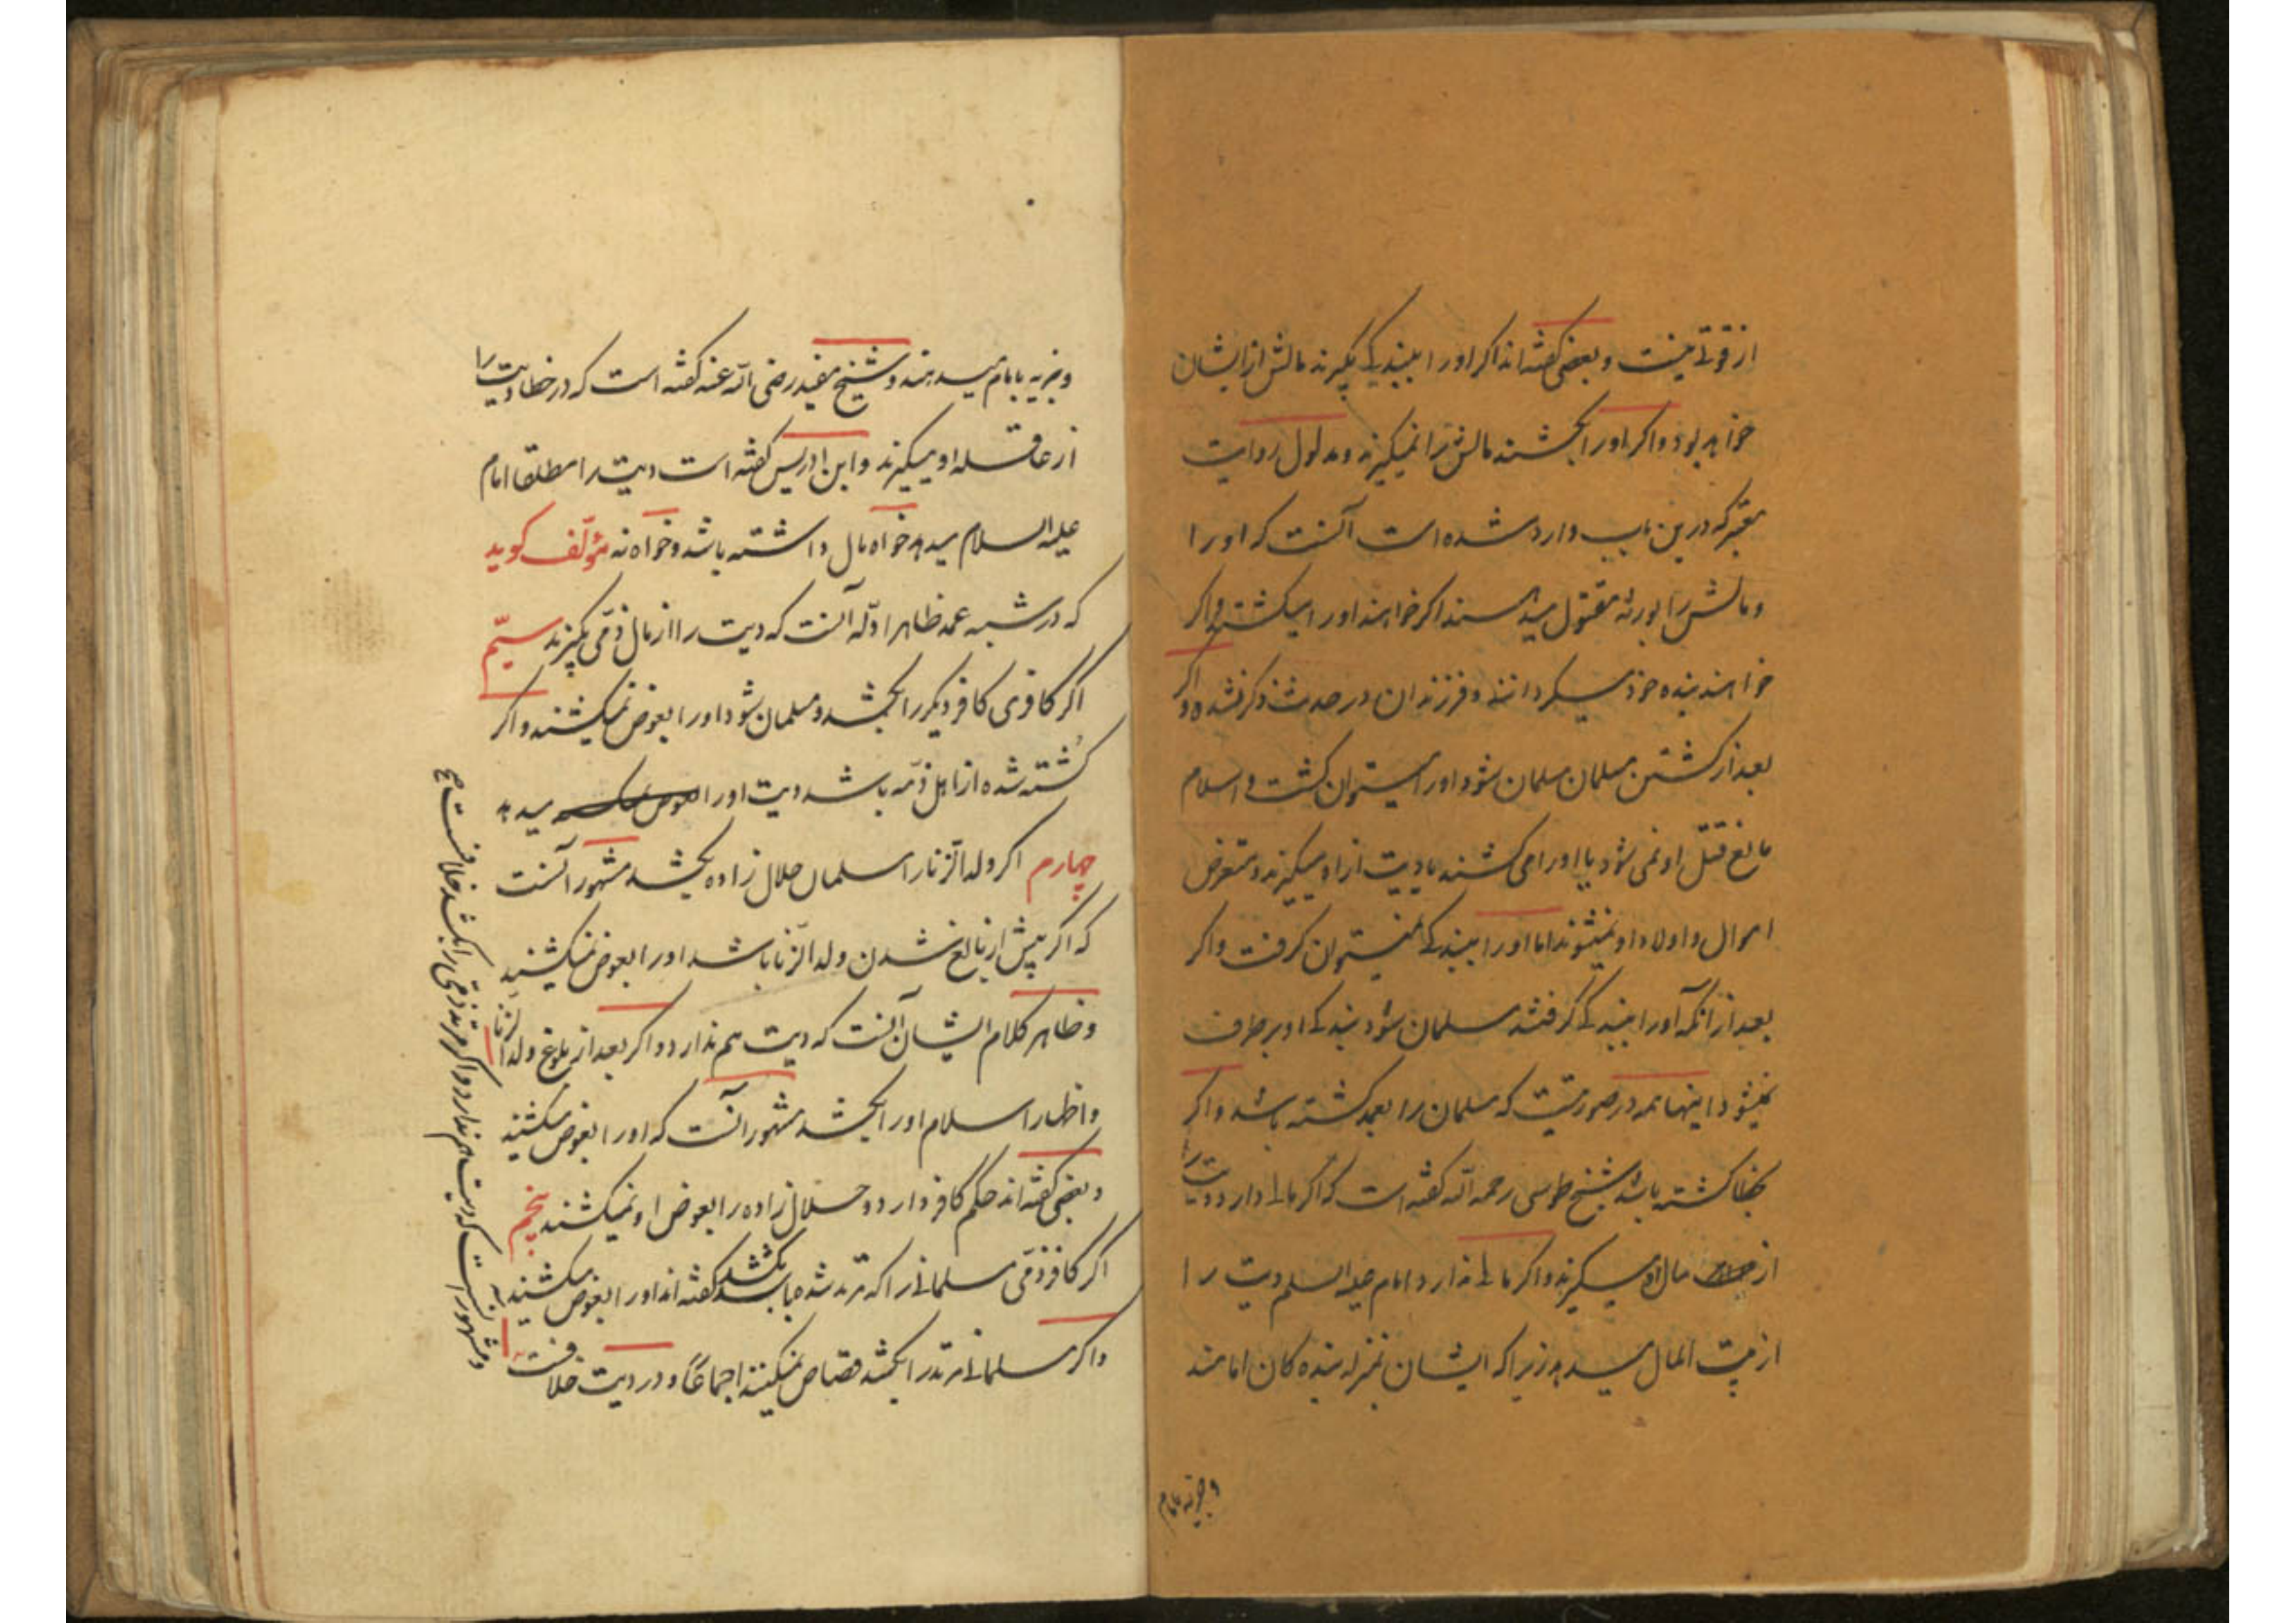 از قوتی نیست و بعضی گفته‌اند اگر او را ببندگی بگیرند مالش از ایشان
خواهد بود و اگر او را بکشند مالش را نمیگیرند و مدلول روایت
معتبر که درین باب وارد شده است آنست که او را
و مالش را بورثه مقتول میدهند اگر خواهند او را میکشند و اگر
خواهند بنده خود میگردانند و فرزندان در حدیث ذکر نشده و اگر
بعد از کشتن مسلمان مسلمان شود او را میتوان کشت و اسلام
مانع قتل او نمی شود یا او را می کشند یا دیت از او میگیرند و متعرض
اموال و اولاد او نمیشوند اما او را ببندگی نمیتوان گرفت و اگر
بعد از آنکه او را ببندگی گرفتند مسلمان شود بندگی او برطرف
نمیشود اینها همه در صورتیست که مسلمان را بعمد کشته باشد و اگر
بخطا کشته باشد شیخ طوسی رحمه الله گفته است که اگر مالی دارد دیت را
از مال او میگیرند و اگر مالی ندارد امام علیه السلم دیت را
از بیت المال میدهد زیرا که ایشان بمنزله بنده کان امامند
و جزیه بامام
و جزیه بامام میدهند و شیخ مفید رضی الله عنه گفته است که در خطا دیت را
از عاقله او میگیرند و ابن ادریس گفته است دیت را مطلقا امام
علیه السلام میدهد خواه مال داشته باشد و خواه نه مؤلّف کوید
که در شبه عمد ظاهر ادلّه آنست که دیت را از مال ذمّی بگیرند سیّم
اگر کافری کافر دیگر را بکشد و مسلمان شود او را بعوض نمیکشند و اگر
کُشته شده از اهل ذمّه باشد دیت او را میدهد
چهارم اگر ولد الزنا را مسلمان حلال زاده بکشد مشهور آنست
که اگر پیش از بالغ شدن ولد الزّنا باشد او را بعوض نمیکشند
و ظاهر کلام ایشان آنست که دیت هم ندارد و اگر بعد از بلوغ ولد الزنا
و اظهار اسلام او را بکشد مشهور آنست که او را بعوض میکشند
و بعضی گفته‌اند حکم کافر دارد و حلال زاده را بعوض او نمیکشند پنجم
اگر کافر ذمّی مسلمانی را که مرتد شده باشد بکشد گفته اند او را بعوض میکشند
و اگر مسلمانی مرتد را بکشد قصاص نمیکنند اجماعًا و در دیت خلافست
و مشهور آنست که دیت هم ندارد و اگر مرتد ذمّی را بکشد خلافست صح